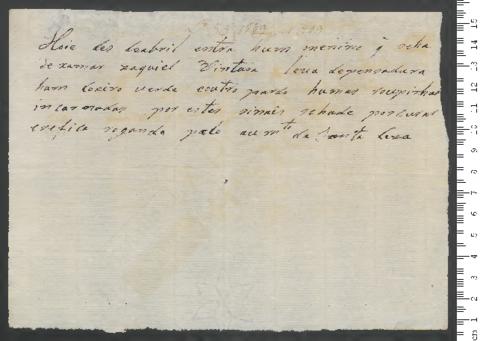 Hoie des deabril entra hum menino q̃ seha
de xamar zaquiel Vintura leva dependura
hum Coeiro verde eoutro pardo humas roupinhas
incarnadas por estes sinais sehade procurar
erefica rogando pelo aumto da Santa Caza
1 2 3 4 5 6 7 8 9 10 11 12 13 14 15
cm